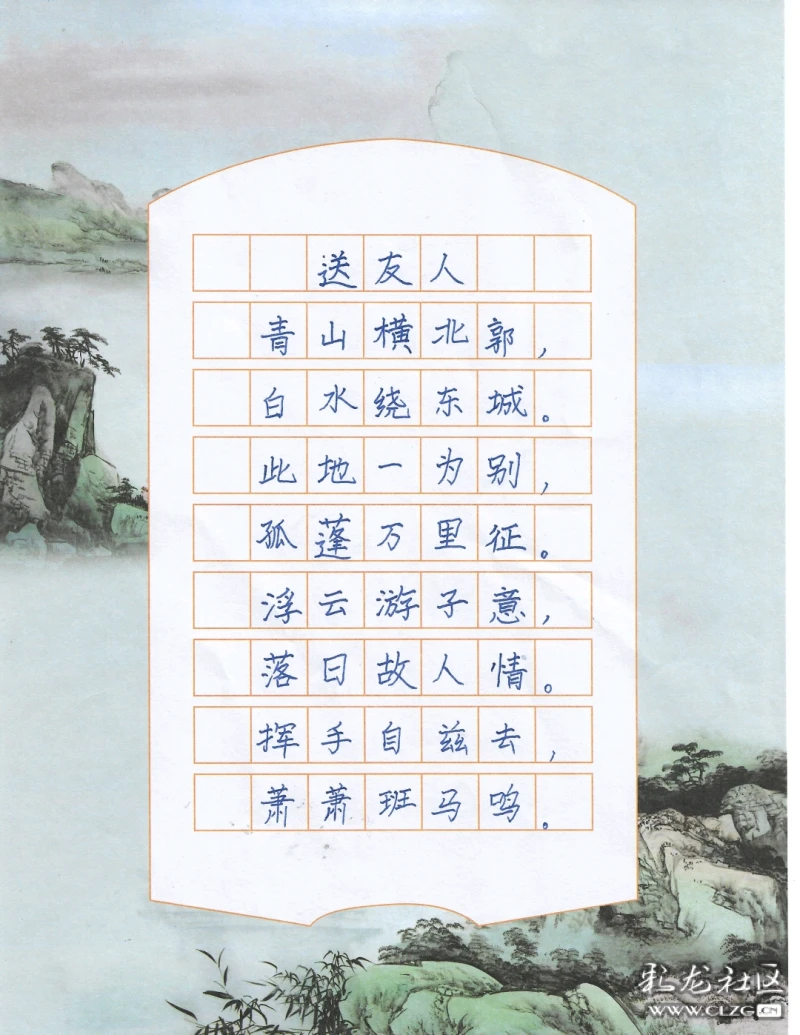 送友人
青山横北郭，
白水绕东城。
此地一为别，
孤蓬万里征。
浮云游子意，
落日故人情。
挥手自兹去，
萧萧班马鸣。
彩龙社区
WWW.CLZG.CN